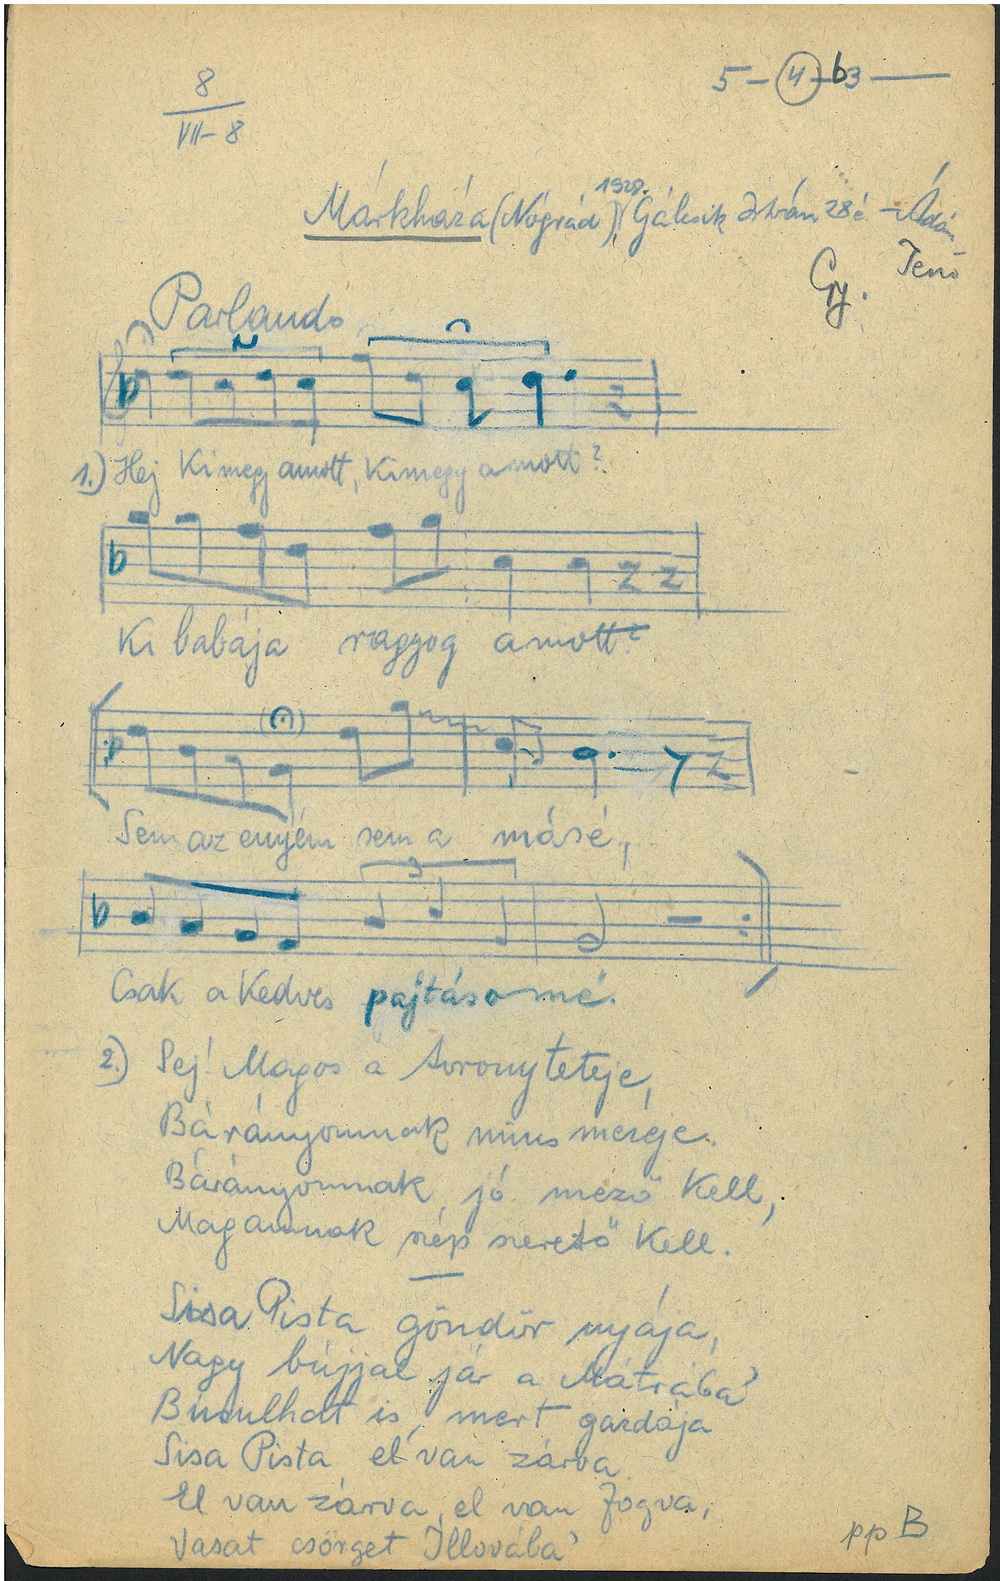 8
VII-8
5-4-b3
Márkháza (Nógrád) 1928. Gálcsik István 28 é - Ádám
Jenő
Gy.
Parlando
1.) Hej Ki megy amott, Ki megy amott?
Ki babája ragyog amott?
Sem az enyém sem a másé,
3
Csak a Kedves pajtásomé.
2.) Sej! Magos a toronyteteje,
Bárányomnak nincs mezeje.
Bárányomnak jó mező Kell,
Magamnak szép szerető Kell.
Sisa Pista göndör nyája,
Nagy bújjal jár a Mátrába'
Búsulhat is, mert gazdája
Sisa Pista el van zárva
El van zárva, el van fogva,
Vasat csörget Illovába'
pp B